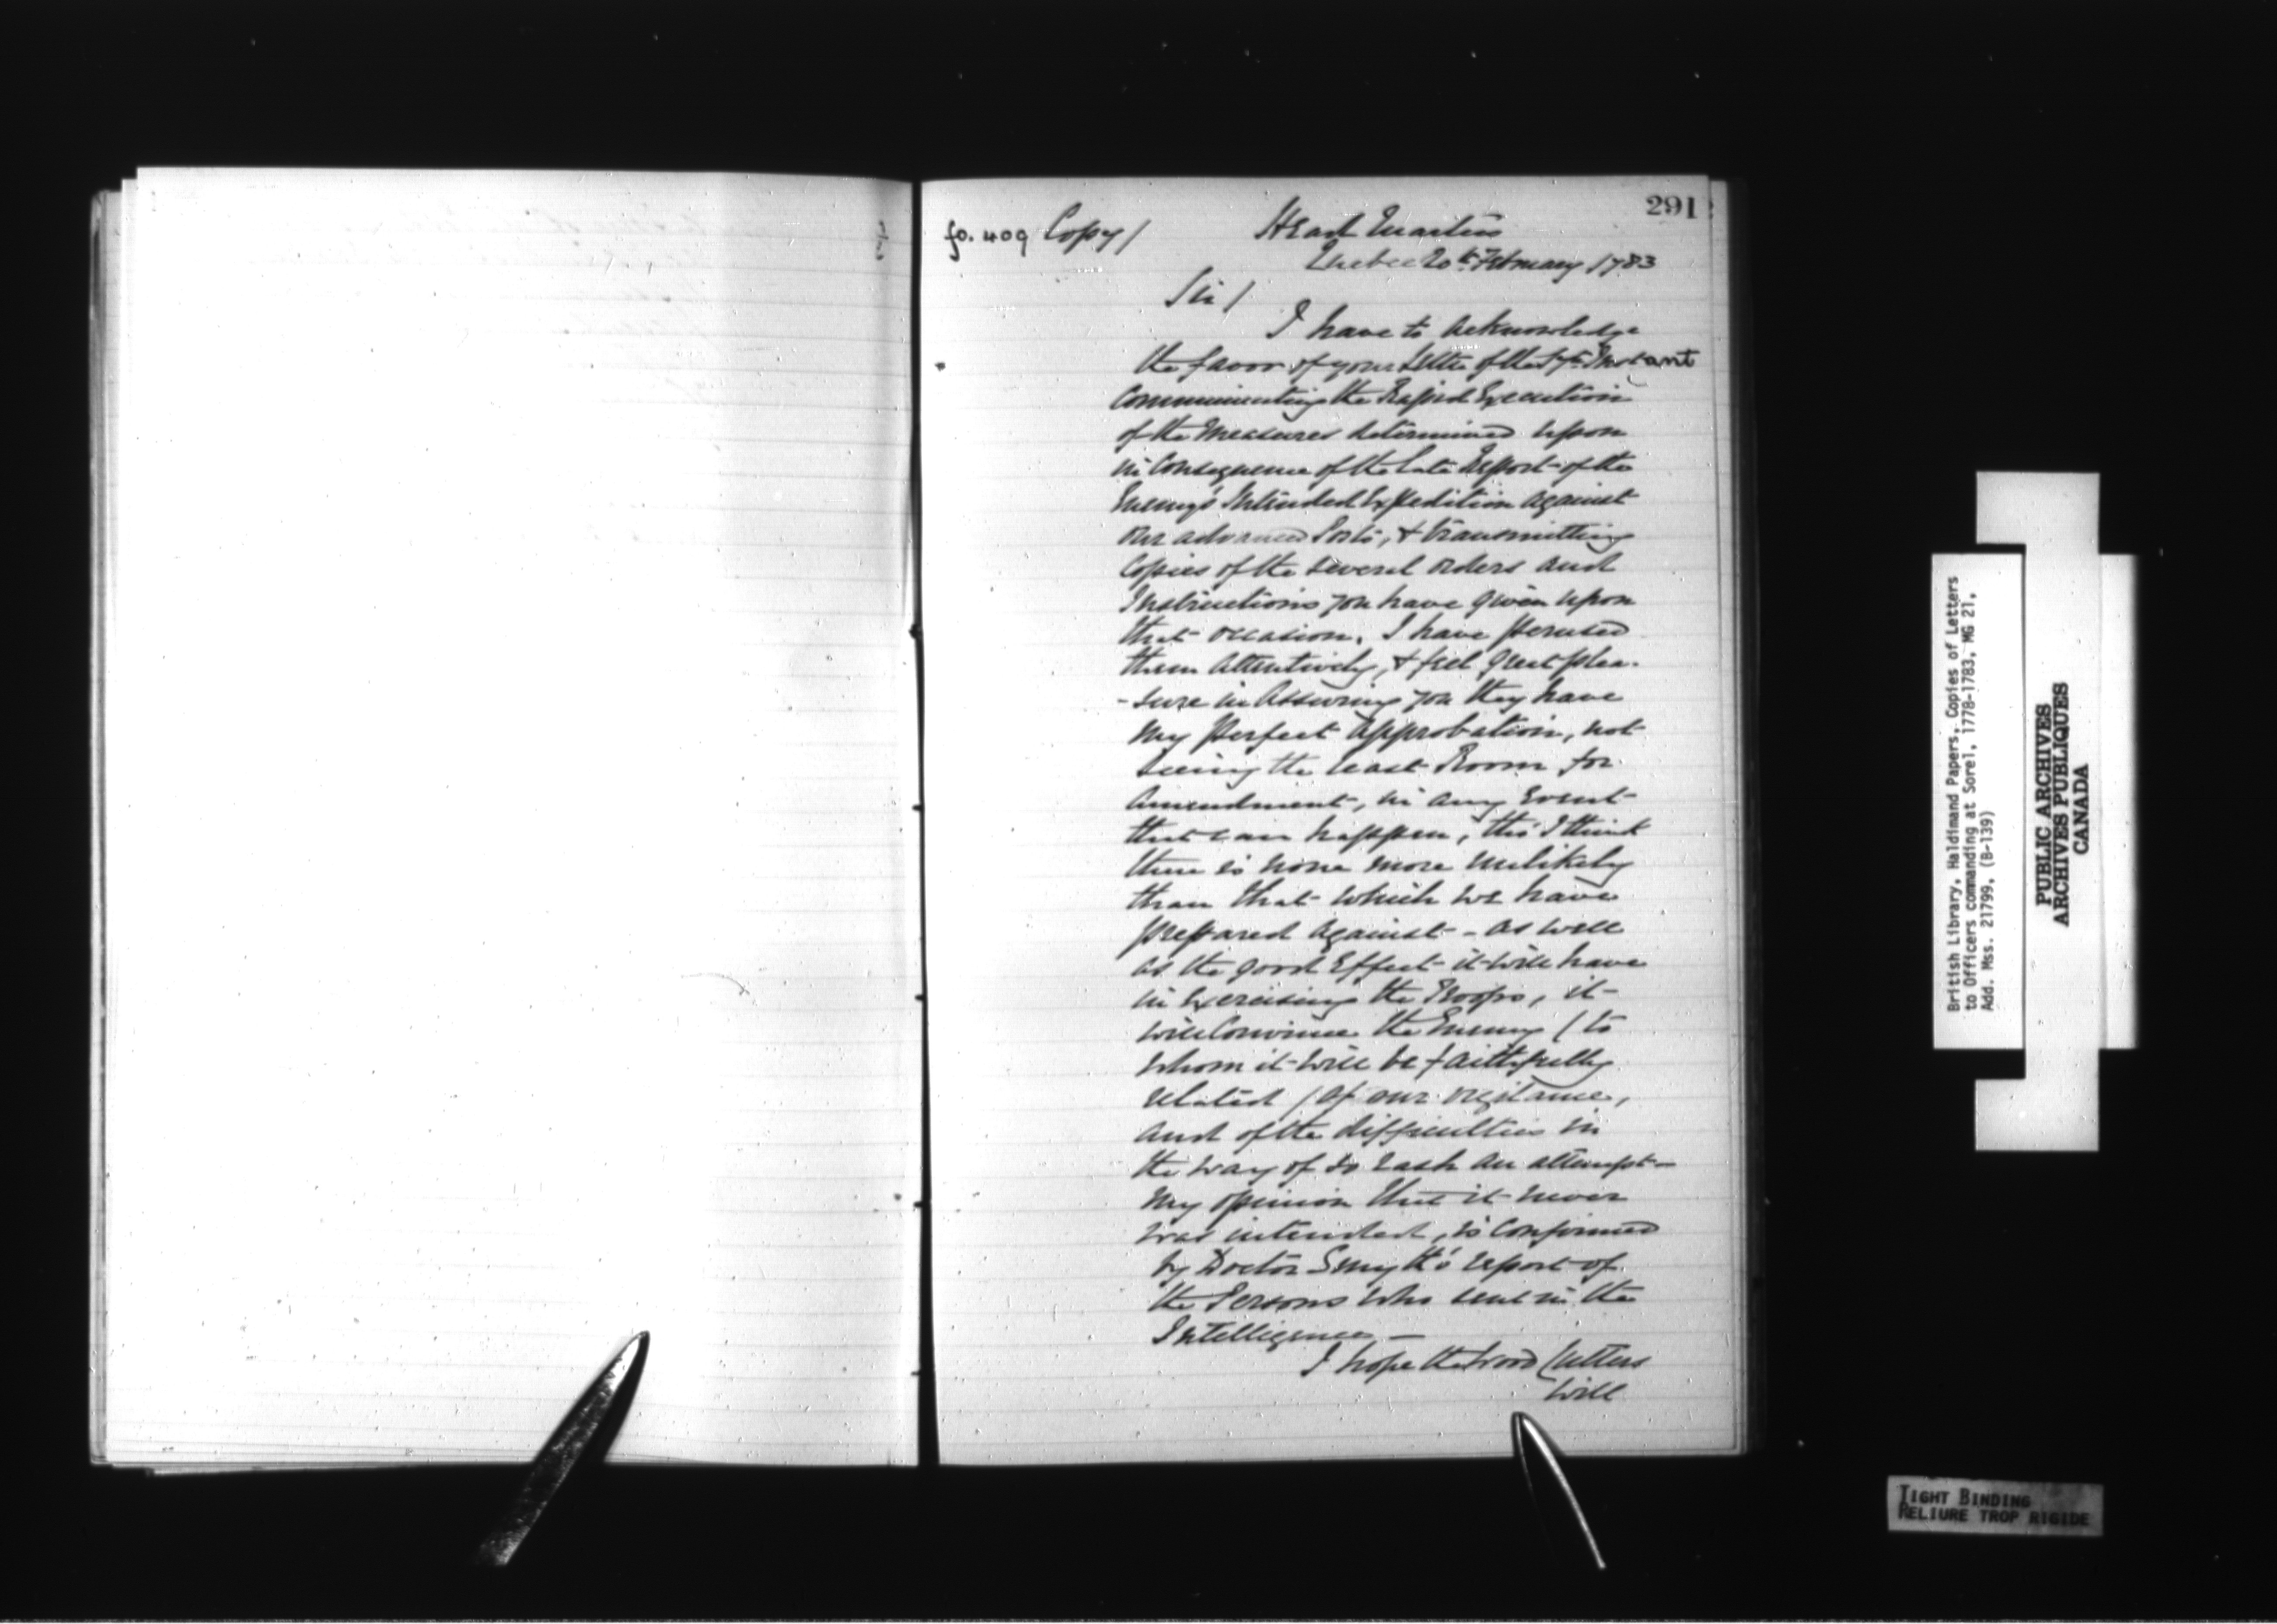 291
fo. 409 Copy/ Head Quarters
Quebec 20th February 1783
Sir/
I have to acknowledge
the favor of your Letter of the 17th Instant
Communicating the Rapid Execution
of the Measures determined upon
in Consequence of the late Report of the
Enemy's Intended Expedition against
our advanced Posts, & transmitting
Copies of the several orders and
Instructions you have given upon
that occasion. I have perused
them attentively, & feel great plea-
-sure in Assuring you they have
my perfect approbation, not
seeing the least Room for
Amendment, in any Event
that can happen, tho' I think
there is none more unlikely
than that which we have
prepared against - as well
as the good Effect it will have
in Exercising the Troops, it
will Convince the Enemy (to
whom it will be faithfully
related) of our vigilance,
and of the difficulties in
the way of so rash an attempt -
my opinion that it never
was intended, is confirmed
by Doctor Smyth's report of
the Persons who sent in the
Intelligence -
I hope the Wood Cutters
will
British Library, Haldimand Papers, Copies of Letters
to Officers commanding at Sorel, 1778-1783, MG 21,
Add. Mss. 21799, (B-139)
PUBLIC ARCHIVES
ARCHIVES PUBLIQUES
CANADA
TIGHT BINDING
RELIURE TROP RIGIDE